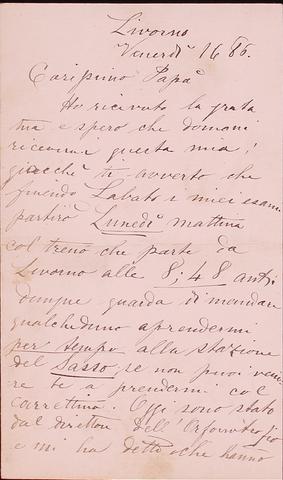 Livorno
Venerdì 16 86.
Carissimo Papà
Ho ricevuto la grata
tua e spero che domani
riceverai questa mia;
giacchè ti avverto che
finendo Sabato i miei esami
partirò Lunedì mattina
col treno che parte da
Livorno alle 8;48 anti
dunque guarda di mandare
qualcheduno a prendermi
per tempo alla stazione
del Sasso, se non puoi veni
re te a prendermi col
carrettino. Oggi sono stato
dal direttore dell'
e mi ha detto che hanno